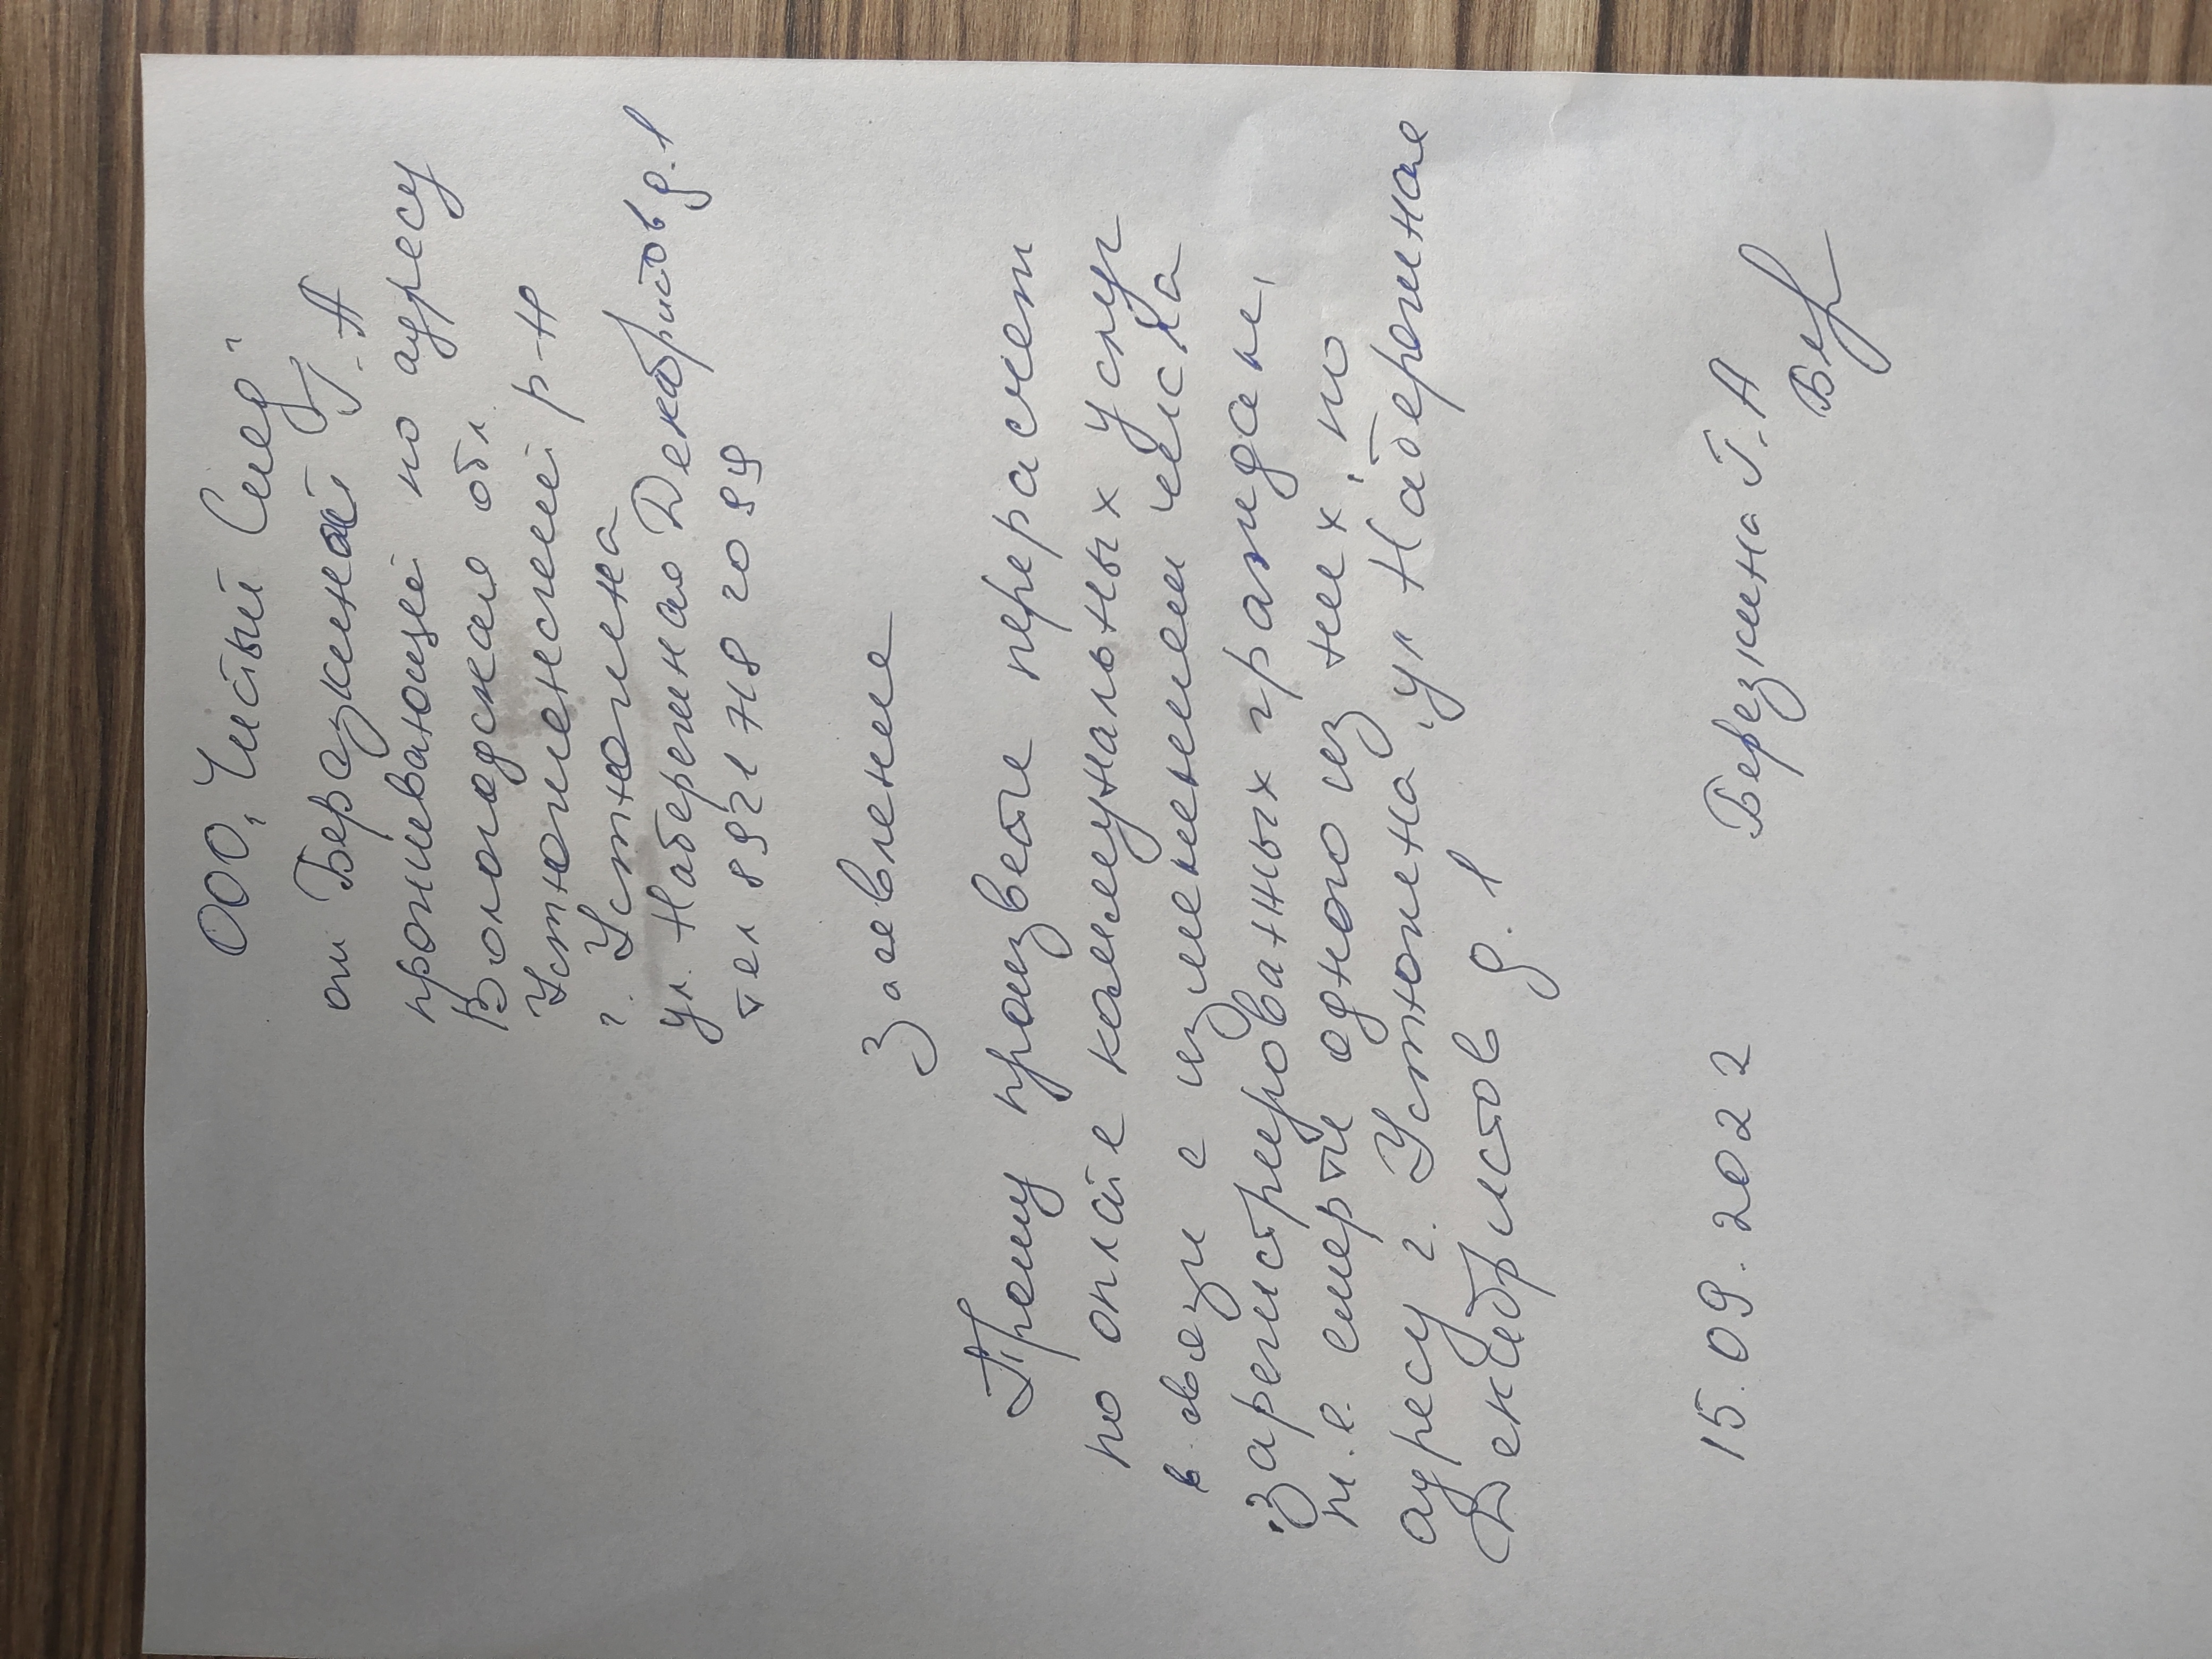 ООО „Чистый След"
от Берёзкиной Г.А
проживающей по адресу
Вологодская обл.
Устюженский р-н
г. Устюжена
ул. Набережная Декабристов д.1
тел 8921 718 20 99
Заявление
Прошу произвести перерасчет
по оплате коммунальных услуг
в связи с изменением числа
зарегистрированных граждан,
т.е. смерти одного из них, по
адресу г. Устюжена, ул Набережная
Декабристов д. 1
15.09.2022 Березкина Г.А
Бер